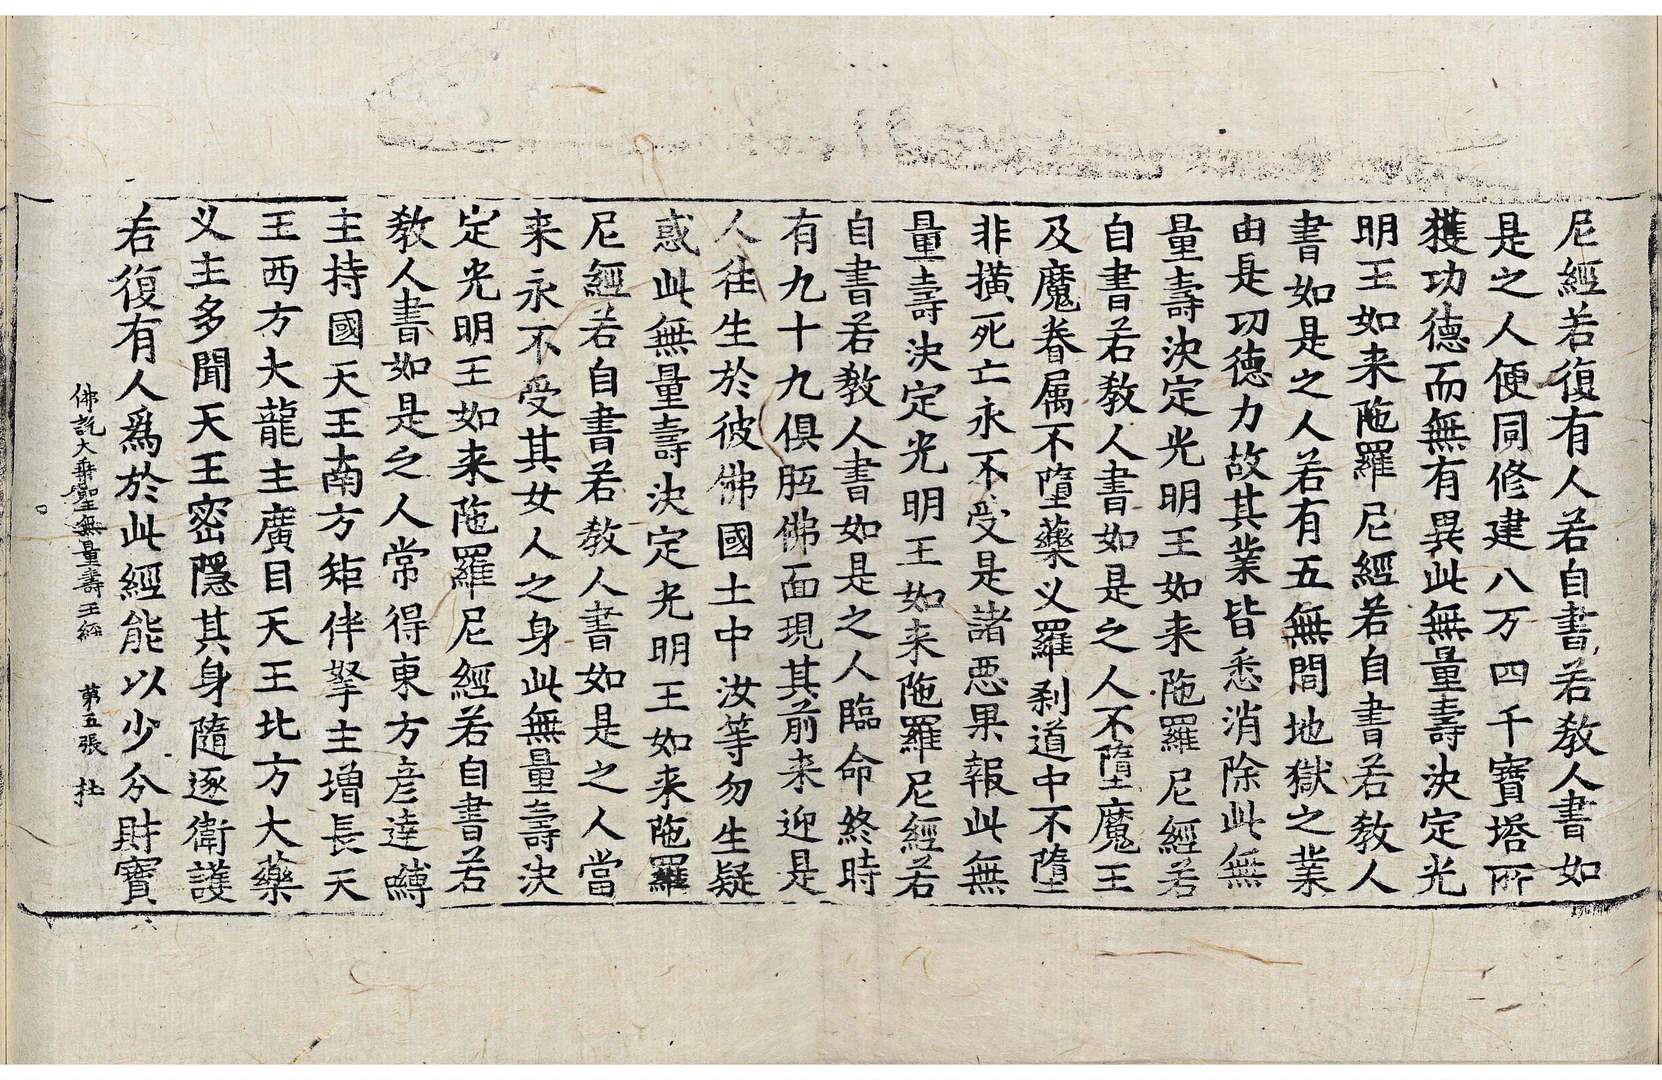 尼經若復有人若自書若教人書如
是之人便同修建八万四千寶塔所
獲功德而無有異此無量壽決定光
明王如来陁羅尼經若自書若教人
書如是之人若有五無間地獄之業
由是功德力故其業皆悉消除此無
量壽決定光明王如来陁羅尼經若
自書若教人書如是之人不墮魔王
及魔眷属不墮藥义羅刹道中不墮
非橫死亡永不受是諸惡果報此無
量壽決定光明王如来陁羅尼經若
自書若教人書如是之人臨命終時
有九十九俱胝佛面現其前来迎是
人往生於彼佛國土中汝等勿生疑
惑此無量壽決定光明王如来陁羅
尼經若自書若教人書如是之人當
来永不受其女人之身此無量壽決
定光明王如来陁羅尼經若自書若
教人書如是之人常得東方彦達嚩
主持國天王南方矩伴拏主增長天
王西方大龍主廣目天王北方大藥
义主多聞天王密隱其身隨逐衛護
若復有人爲於此經能以少分財寶
佛說大乘聖無量壽王經 第五張 杜